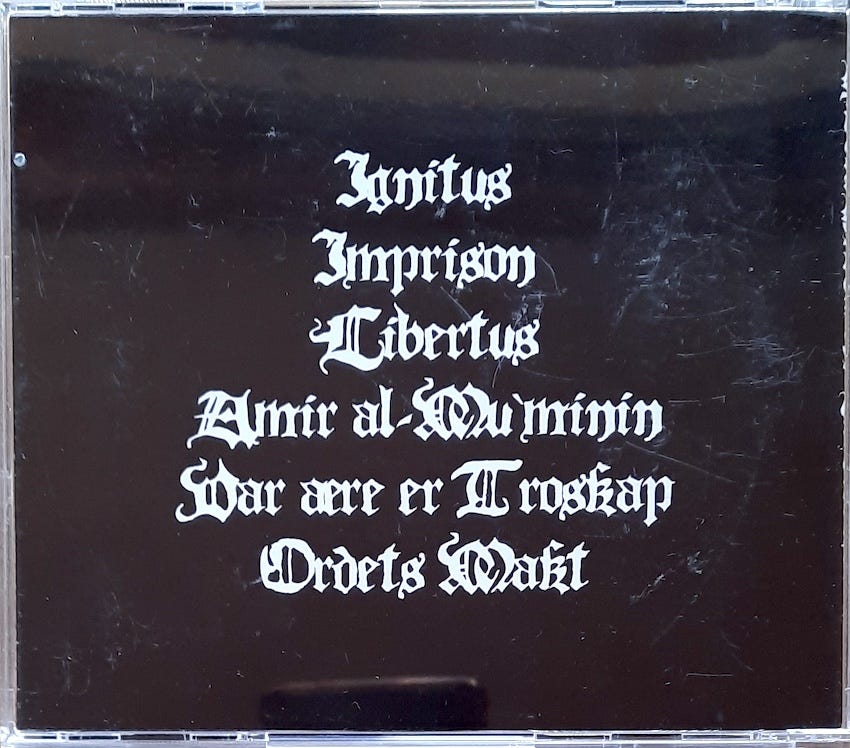 Ignitus
Imprison
Libertus
Amir al-Mu'minin
Var aere er Troskap
Ordets Makt